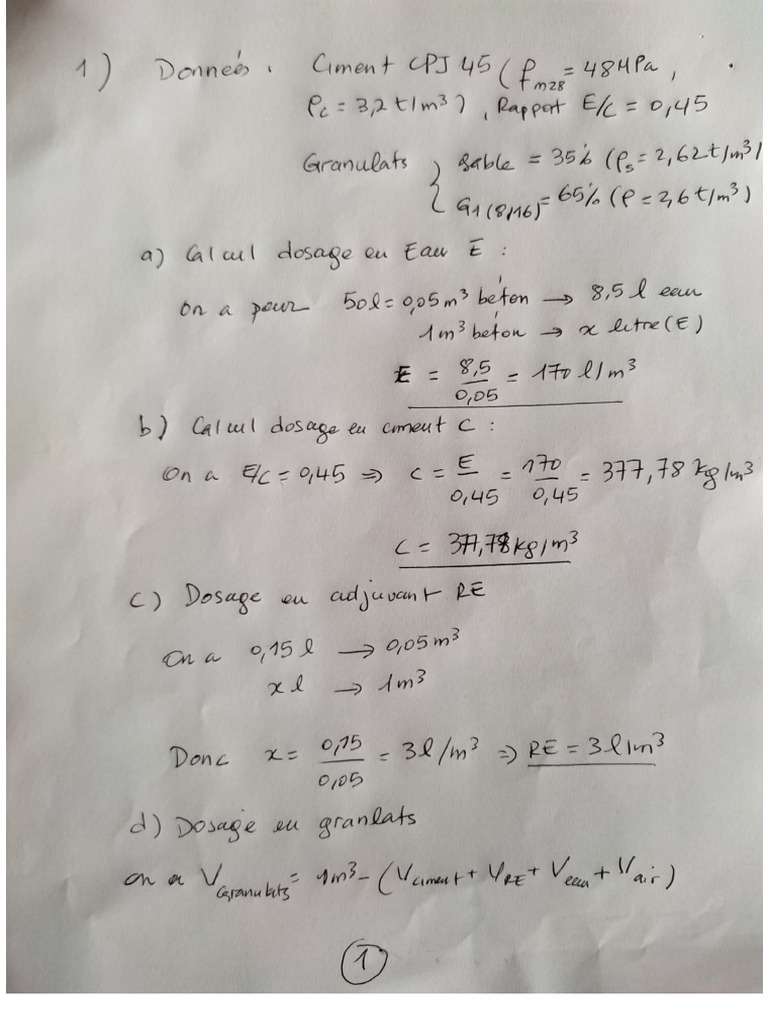 1) Donneés : Ciment CPJ 45 (fm28 = 48MPa,
ρc = 3,2 t/m³), Rapport E/C = 0,45
Granulats { sable = 35% (ρs = 2,62 t/m³)
G1(8/16) = 65% (ρ = 2,6 t/m³)
a) Calcul dosage en Eau E :
on a pour 50l = 0,05 m³ béton → 8,5 l eau
1m³ béton → x litre (E)
E = 8,5/0,05 = 170 l/m³
b) Calcul dosage en ciment C :
On a E/C = 0,45 ⇒ C = E/0,45 = 170/0,45 = 377,78 kg/m³
C = 377,78 kg/m³
c) Dosage en adjuvant RE
On a 0,15 l → 0,05 m³
x l → 1m³
Donc x = 0,15/0,05 = 3 l/m³ ⇒ RE = 3 l/m³
d) Dosage en granlats
on a VGranulats = 1m³ - (Vciment + VRE + Veau + Vair)
1